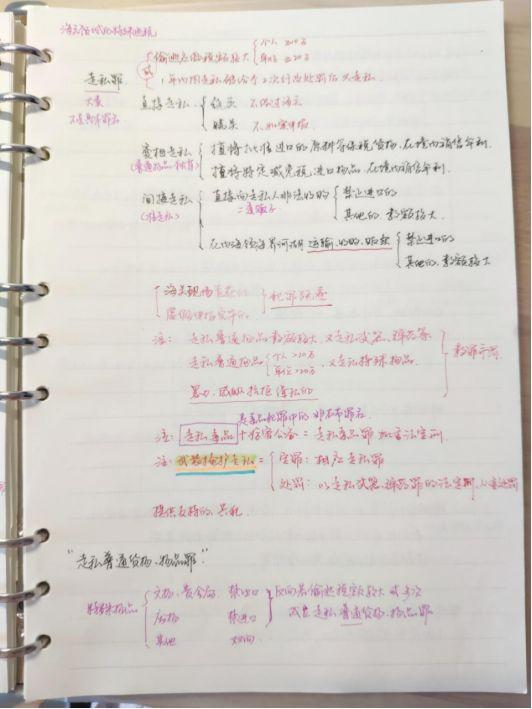 偷逃应缴税额较大 { 个人 ≥10万
单位 ≥20万
或
1年内因走私被给予2次行政处罚后又走私.
走私罪
大类
不是具体罪名
直接走私 { 绕关 不经过海关
瞒关 不如实申报
变相走私 { 擅将批准进口的原料等保税货物, 在境内销售牟利.
(普通物品独有) 擅将特定减免税进口物品, 在境内销售牟利.
间接走私 { 直接向走私人非法收购 { 禁止进口的
(准走私) 二道贩子 其他的, 数额较大.
在内海领海界河湖 运输、收购、贩卖 { 禁止进出口的
其他的, 数额较大
犯罪既遂
注: 走私普通物品数额较大, 又走私武器、弹药等
走私普通物品 { 个人 >10万 , 又走私特殊物品.
单位 >20万
数罪并罚
暴力、威胁抗拒缉私的
注: 走私毒品 + 抗拒公安 = 走私毒品罪
注: 武装掩护走私 = { 定罪: 相应走私罪
处罚: 以走私武器、弹药罪的法定刑, 从重处罚
提供支持的, 共犯.
"走私普通货物、物品罪."
特殊物品 { 文物、贵金属 禁出口 } 反向若偷逃税额较大或多次
废物 禁进口 成立走私普通货物、物品罪
其他 双向